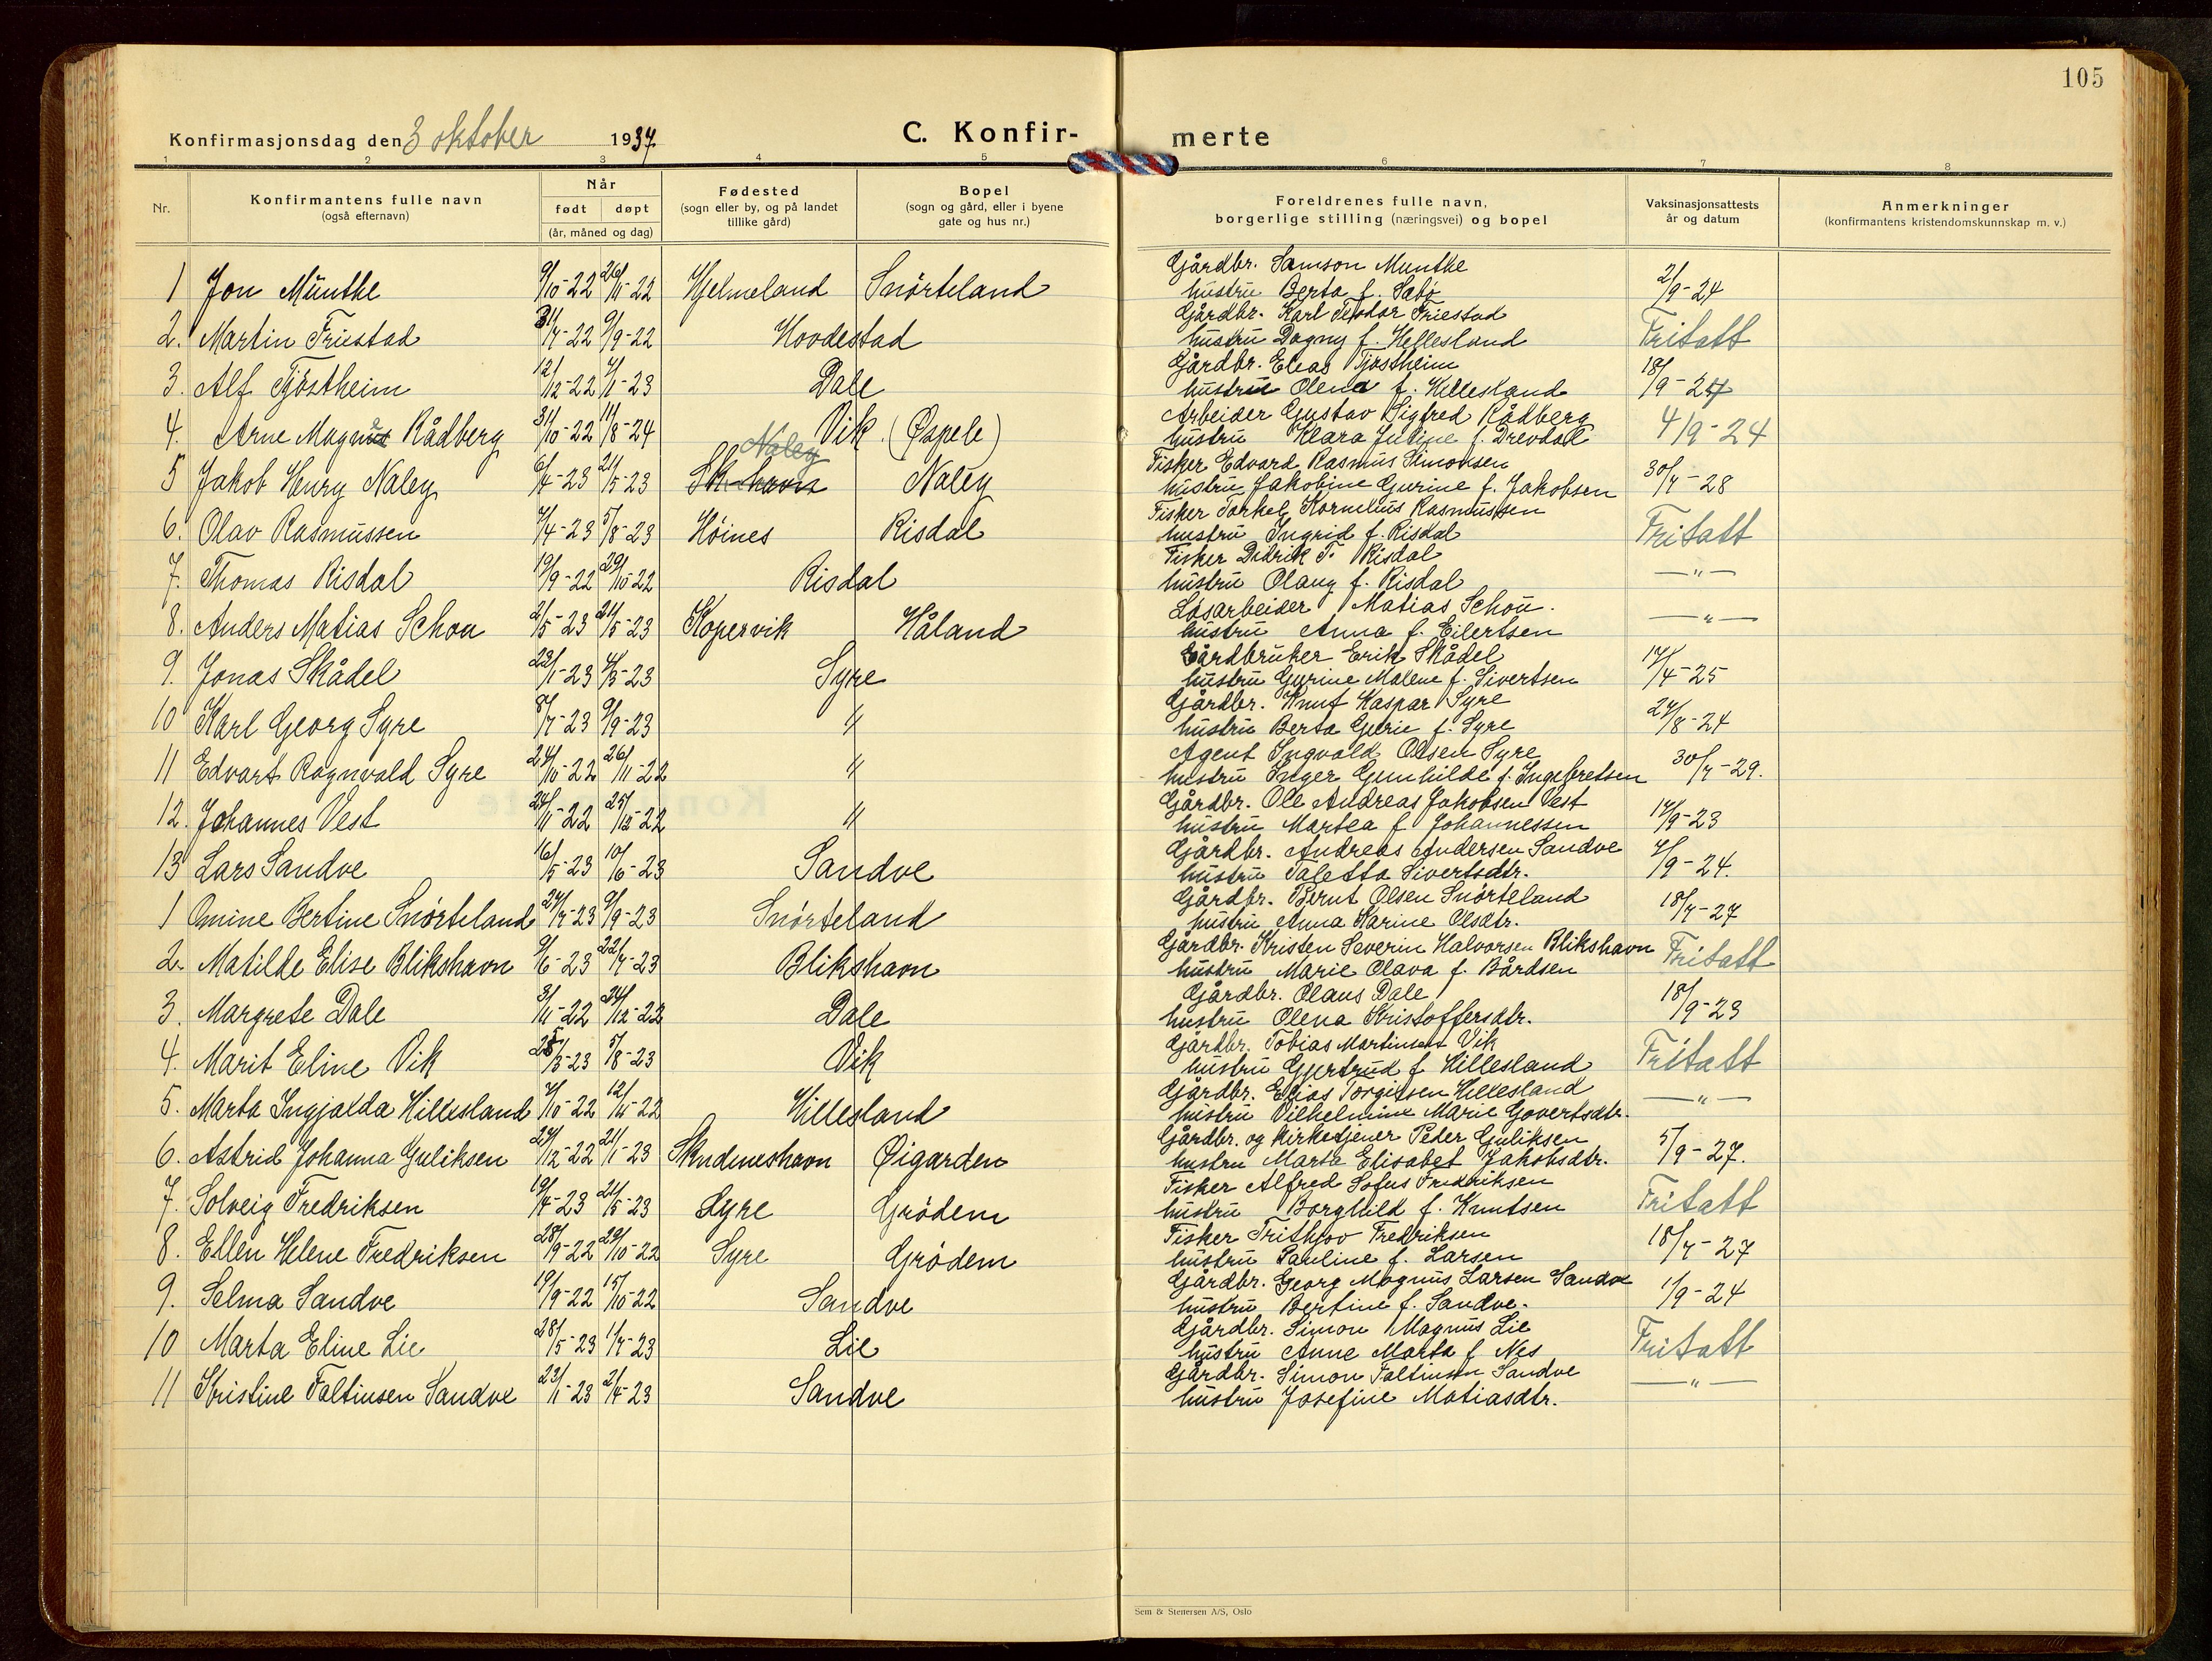 105
Konfirmasjonsdag den 3 oktober 1937
C. Konfir- merte
1 2 3 4 5 6 7 8
Nr.
Konfirmantens fulle navn
(også efternavn)
Når
født døpt
(år, måned og dag)
Fødested
(sogn eller by, og på landet
tillike gård)
Bopel
(sogn og gård, eller i byene
gate og hus nr.)
Foreldrenes fulle navn,
borgerlige stilling (næringsvei) og bopel
Vaksinasjonsattests
år og datum
Anmerkninger
(konfirmantens kristendomskunnskap m. v.)
1 Jon Munthe 9/10-22 26/11-22 Hjelmeland Snørteland Gårdbr. Samson Munthe
hustru Berta f. Sabø 2/9-24
2. Martin Friestad 31/7-22 9/9-22 Hovdestad Gårdbr. Karl Teodor Friestad
hustru Dagny f. Hellesland Fritatt
3. Alf Tjøstheim 12/12-22 7/1-23 Dale Gårdbr. Elias Tjøstheim
hustru Olena f. Hillesland 18/9-24
4. Arne Magnus Rådberg 31/10-22 11/8-24 Vik (Øspele) Arbeider Gustav Sigfred Rådberg
hustru Klara Jutine f. Drevdal 4/9-24
Naley
5 Jakob Henry Naley 6/4-23 21/5-23 Sk-havn Naley Fisker Edvard Rasmus Simonsen
hustru Jakobine Gurine f. Jakobsen 30/7-28
6. Olav Rasmussen 7/4-23 5/8-23 Høines Risdal Fisker Torkel Kornelius Rasmussen
hustru Ingrid f. Risdal Fritatt
7. Thomas Risdal 19/9-22 29/10-22 Risdal Fisker Didrik T. Risdal
hustru Olaug f. Risdal —"—
8. Anders Matias Schou 2/5-23 21/5-23 Kopervik Håland Løsarbeider Matias Schou.
hustru Anna f. Eilertsen —"—
9. Jonas Skådel 22/1-23 4/3-23 Syre Gårdbruker Erik Skådel
hustru Gurine Malene f. Sivertsen 17/4-25
10 Karl Georg Syre 8/7-23 9/9-23 " Gårdbr. Knut Kaspar Syre
hustru Berta Gurie f. Syre 27/8-24
11 Edvart Ragnvald Syre 24/10-22 26/11-22 " Agent Ingvald Olsen Syre
hustru Inger Gunhilde f. Ingebretsen 30/7-29.
12. Johannes Vest 24/11-22 25/12-22 " Gårdbr. Ole Andreas Jakobsen Vest
hustru Martea f. Johannessen 17/9-23
13 Lars Sandve 16/5-23 10/6-23 Sandve Gårdbr. Andreas Andersen Sandve
hustru Taletta Sivertsdtr. 7/9-24.
1 Omine Bertine Snørteland 24/7-23 9/9-23 Snørteland Gårdbr. Bernt Olsen Snørteland
hustru Anna Karine Olsdtr. 18/7-27
2. Matilde Elise Blikshavn 9/6-23 22/7-23 Blikshavn Gårdbr. Kristen Severin Halvorsen Blikshavn
hustru Marie Olava f. Bårdsen Fritatt
3. Margrete Dale 3/11-22 24/12-22 Dale Gårdbr. Olaus Dale
hustru Olena Kristoffersdtr. 18/9-23
4. Marit Eline Vik 25/3-23 5/8-23 Vik Gårdbr. Tobias Martinsen Vik
hustru Gjertrud f. Hillesland Fritatt
5. Marta Ingjalda Hillesland 7/10-22 12/11-22 Hillesland Gårdbr. Elias Torgilsen Hillesland
hustru Vilhelmine Marie Govertsdtr. —"—
6. Astrid Johanna Guliksen 27/12-22 21/1-23 Skudneshavn Øigarden Gårdbr. og kirketjener Peder Guliksen
hustru Marta Elisabet Jakobsdtr. 5/9-27.
7. Solveig Fredriksen 19/4-23 21/5-23 Syre Grødem Fisker Alfred Sofus Fredriksen
hustru Borghild f. Knutsen Fritatt
8. Ellen Helene Fredriksen 28/9-22 29/10-22 Syre Grødem Fisker Trithjov Fredriksen
hustru Pauline f. Larsen 18/7-27
9. Selma Sandve 19/9-22 15/10-22 Sandve Gårdbr. Georg Magnus Larsen Sandve
hustru Bertine f. Sandve. 1/9-24
10 Marta Eline Lie 28/5-23 1/7-23 Lie Gårdbr. Simon Magnus Lie
hustru Anne Marta f. Nes Fritatt
11 Kristine Faltinsen Sandve 23/1-23 2/4-23 Sandve Gårdbr. Simon Faltinsen Sandve
hustru Josefine Matiasdtr. —"—
Sem & Stenersen A/S, Oslo